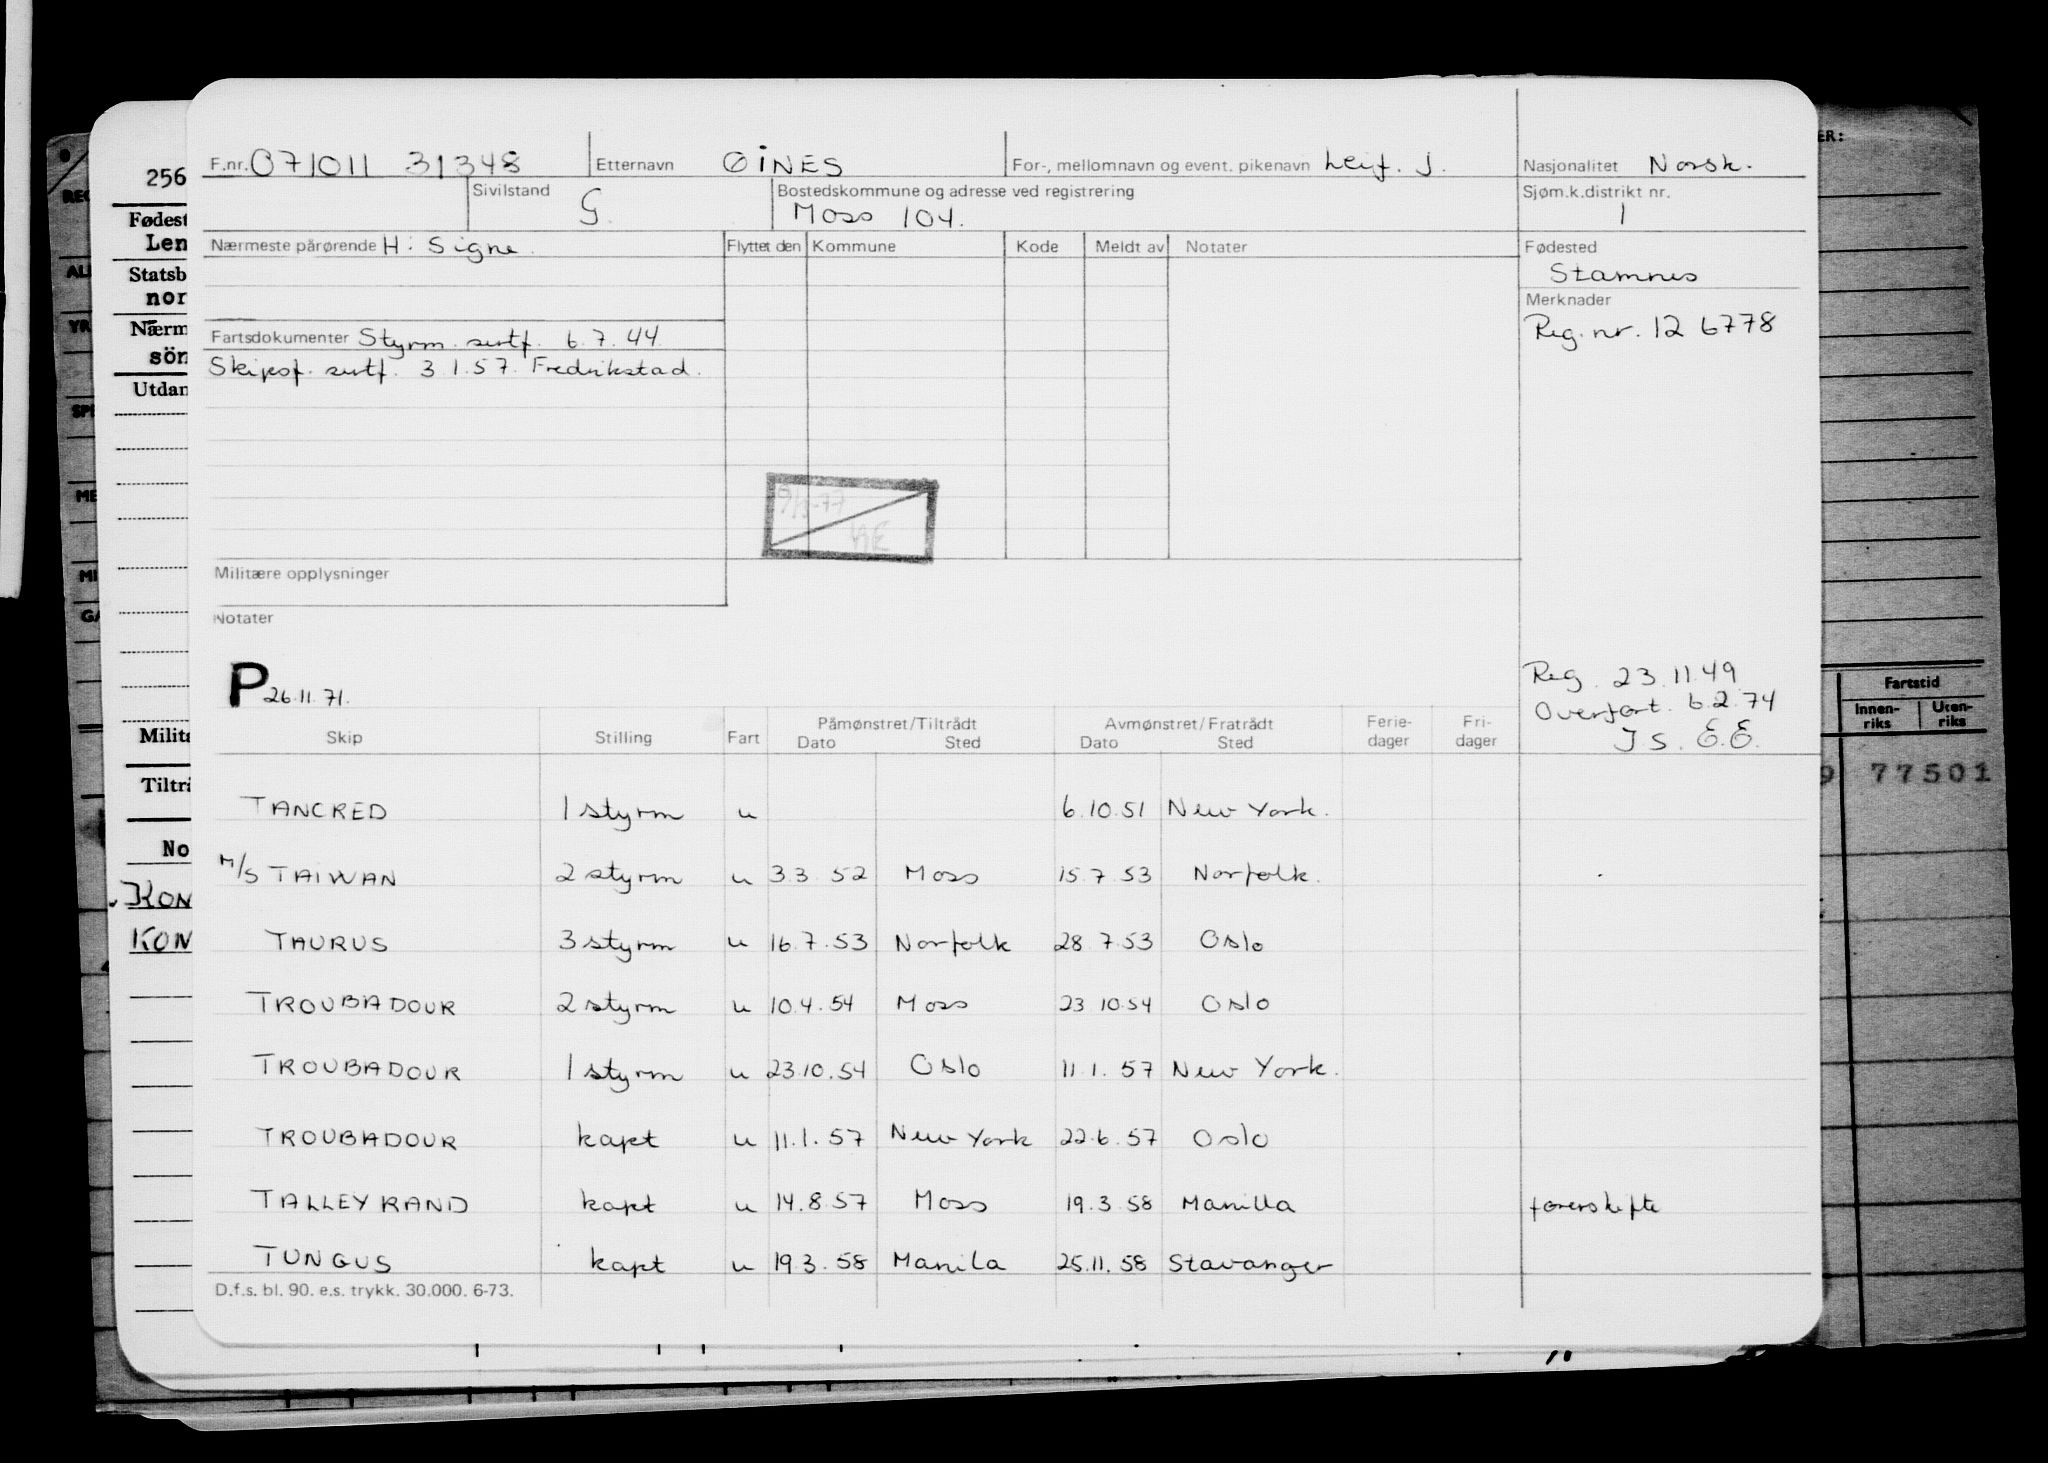 F.nr. 071011 31348 Etternavn OINES For-, mellomnavn og event. pikenavn Leif. J. Nasjonalitet Norsk.
Sivilstand G. Bostedskommune og adresse ved registrering Moss 104. Sjøm.k.distrikt nr. 1
Nærmeste pårørende H: Signe. Flyttet den Kommune Kode Meldt av Notater Fødested
Stamnes
Merknader
Reg. nr. 126778
Fartsdokumenter Styrm. sertf. 6.7.44.
Skipsf. sertf. 3.1.57. Fredrikstad.
Militære opplysninger
Notater
P 26.11.71.
Reg. 23.11.49
Overført. 6.2.74
J S. E.E.
Skip Stilling Fart Påmønstret/Tiltrådt Dato Sted Avmønstret/Fratrådt Dato Sted Ferie-dager Fri-dager
TANCRED 1 styrm u 6.10.51 New York.
M/S TAIWAN 2 styrm u 3.3.52 Moss 15.7.53 Norfolk.
TAURUS 3 styrm u 16.7.53 Norfolk 28.7.53 Oslo
TROUBADOUR 2 styrm u 10.4.54 Moss 23.10.54 Oslo
TROUBADOUR 1 styrm u 23.10.54 Oslo 11.1.57 New York.
TROUBADOUR kapt u 11.1.57 New York 22.6.57 Oslo
TALLEYRAND kapt u 14.8.57 Moss 19.3.58 Manilla førerskifte
TUNGUS kapt u 19.3.58 Manila 25.11.58 Stavanger
D.f.s. bl. 90. e.s. trykk. 30.000. 6-73.
256
Fødest
Len
Statsb
nor
Nærm
sön
Utdan
Milita
Tiltr
No
KON
KON
ER:
Fartstid
Innen-riks Uten-riks
9 77501